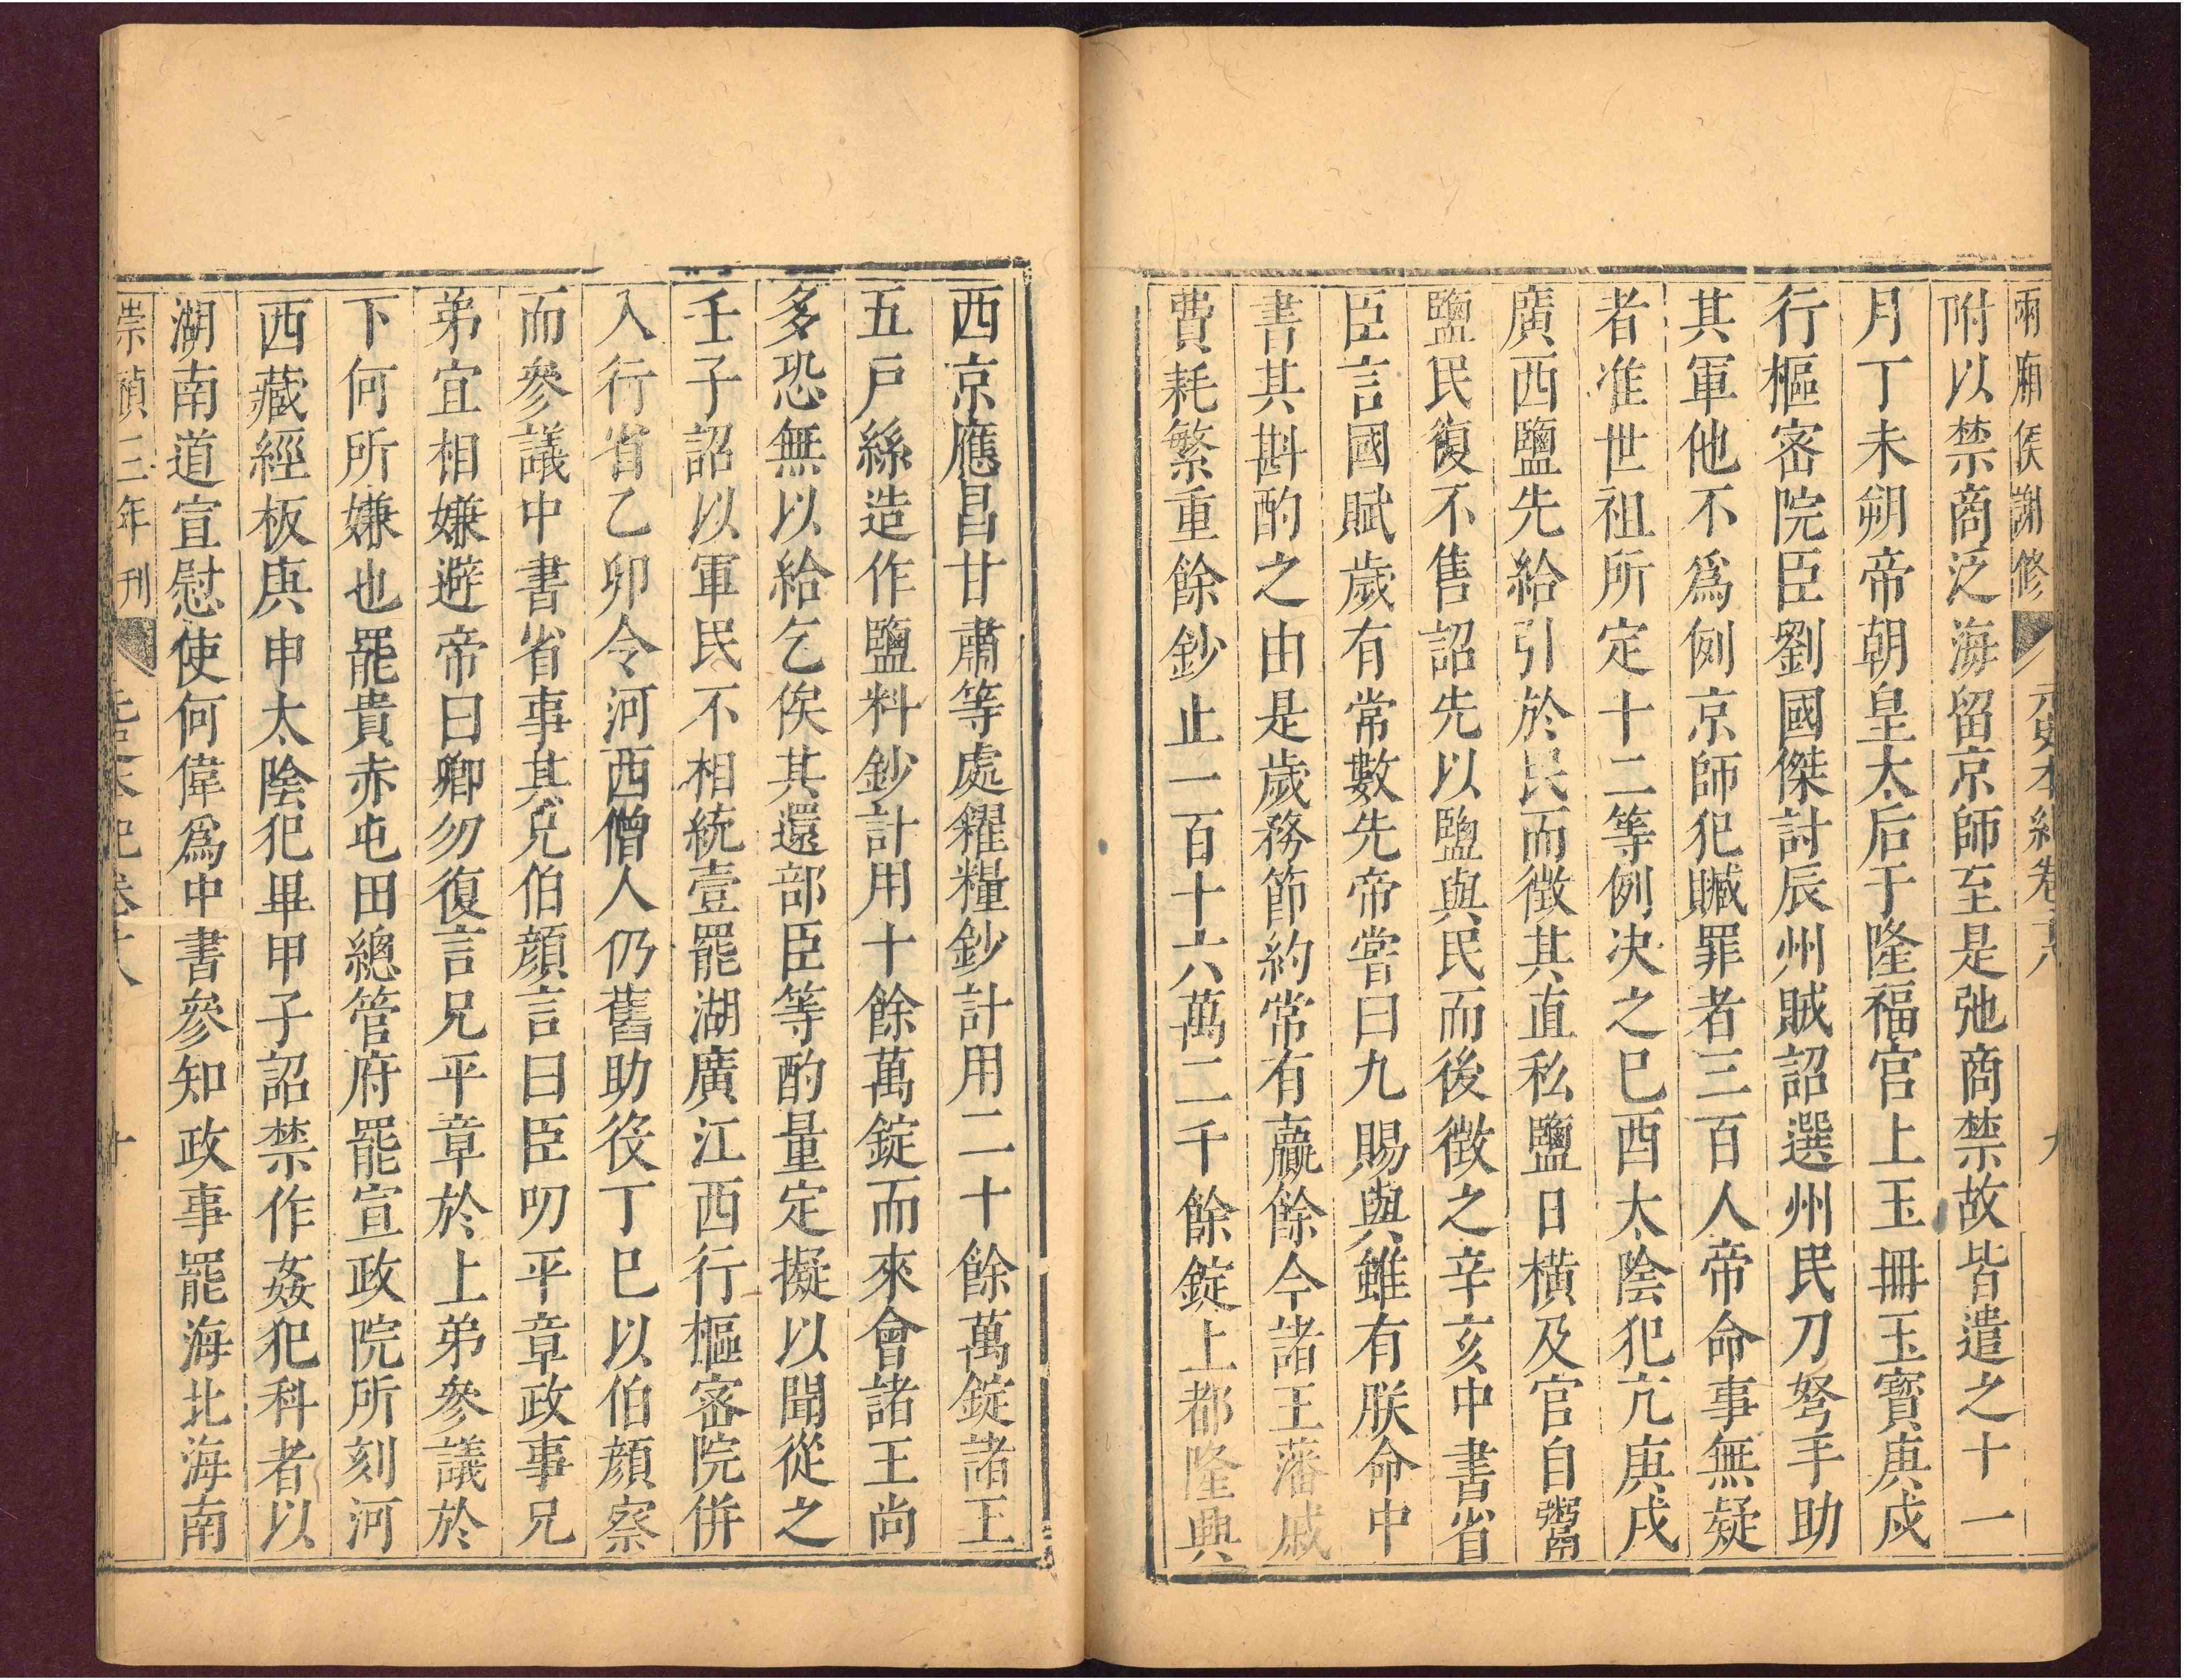 兩廂侯謝修 元史本紀卷十八 九
附以禁商泛海留京師至是弛商禁故皆遣之十一
月丁未朔帝朝皇太后于隆福宮上玉冊玉寶庚戌
行樞密院臣劉國傑討辰州賊詔選州民刀弩手助
其軍他不爲例京師犯贓罪者三百人帝命事無疑
者准世祖所定十二等例决之巳酉太陰犯亢庚戌
廣西鹽先給引於民而徵其直私鹽日橫及官自鬻
鹽民復不售詔先以鹽與民而後徵之辛亥中書省
臣言國賦歲有常數先帝嘗曰九賜與雖有朕命中
書其斟酌之由是歲務節約常有贏餘今諸王藩戚
費耗繁重餘鈔止一百十六萬二千餘錠上都隆興
西京應昌甘肅等處糴糧鈔計用二十餘萬錠諸王
五戶絲造作鹽料鈔計用十餘萬錠而來會諸王尚
多恐無以給乞俟其還部臣等酌量定擬以聞從之
壬子詔以軍民不相統壹罷湖廣江西行樞密院併
入行省乙卯令河西僧人仍舊助役丁巳以伯顏察
而參議中書省事其兄伯顏言曰臣叨平章政事兄
弟宜相嫌避帝曰卿勿復言兄平章於上弟參議於
下何所嫌也罷貴赤屯田總管府罷宣政院所刻河
西藏經板庚申太陰犯畢甲子詔禁作姦犯科者以
湖南道宣慰使何偉爲中書參知政事罷海北海南
崇禎三年刊 元史本紀卷十八 十